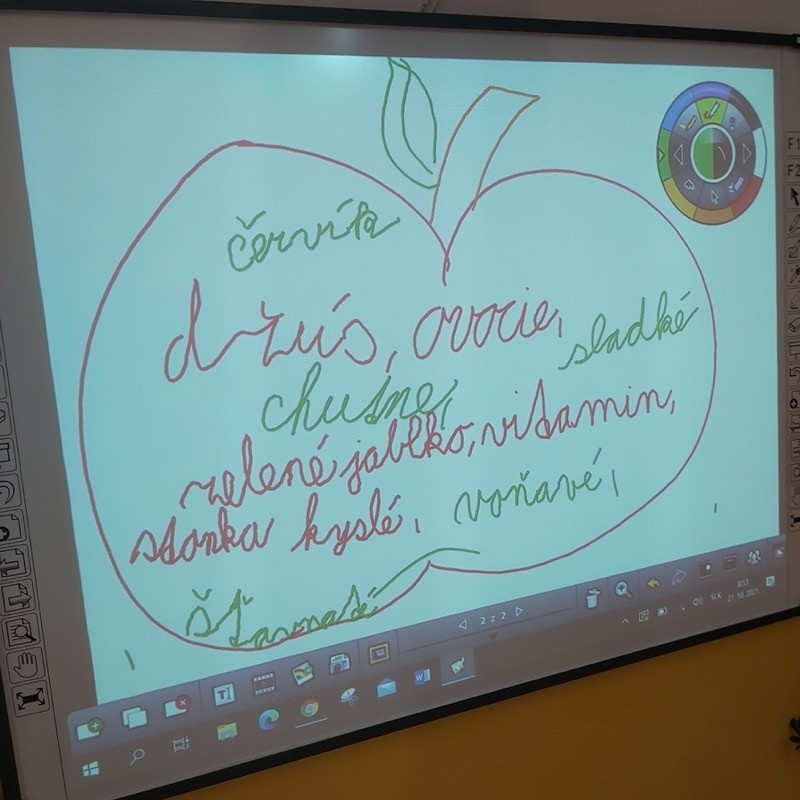 červík
džús, ovocie,
sladké
chutné,
zelené jablko, vitamin,
stonka kyslé, voňavé,
šťavnaté
F1
F2
2 z 2
8:53
SLK
21. 10. 2021